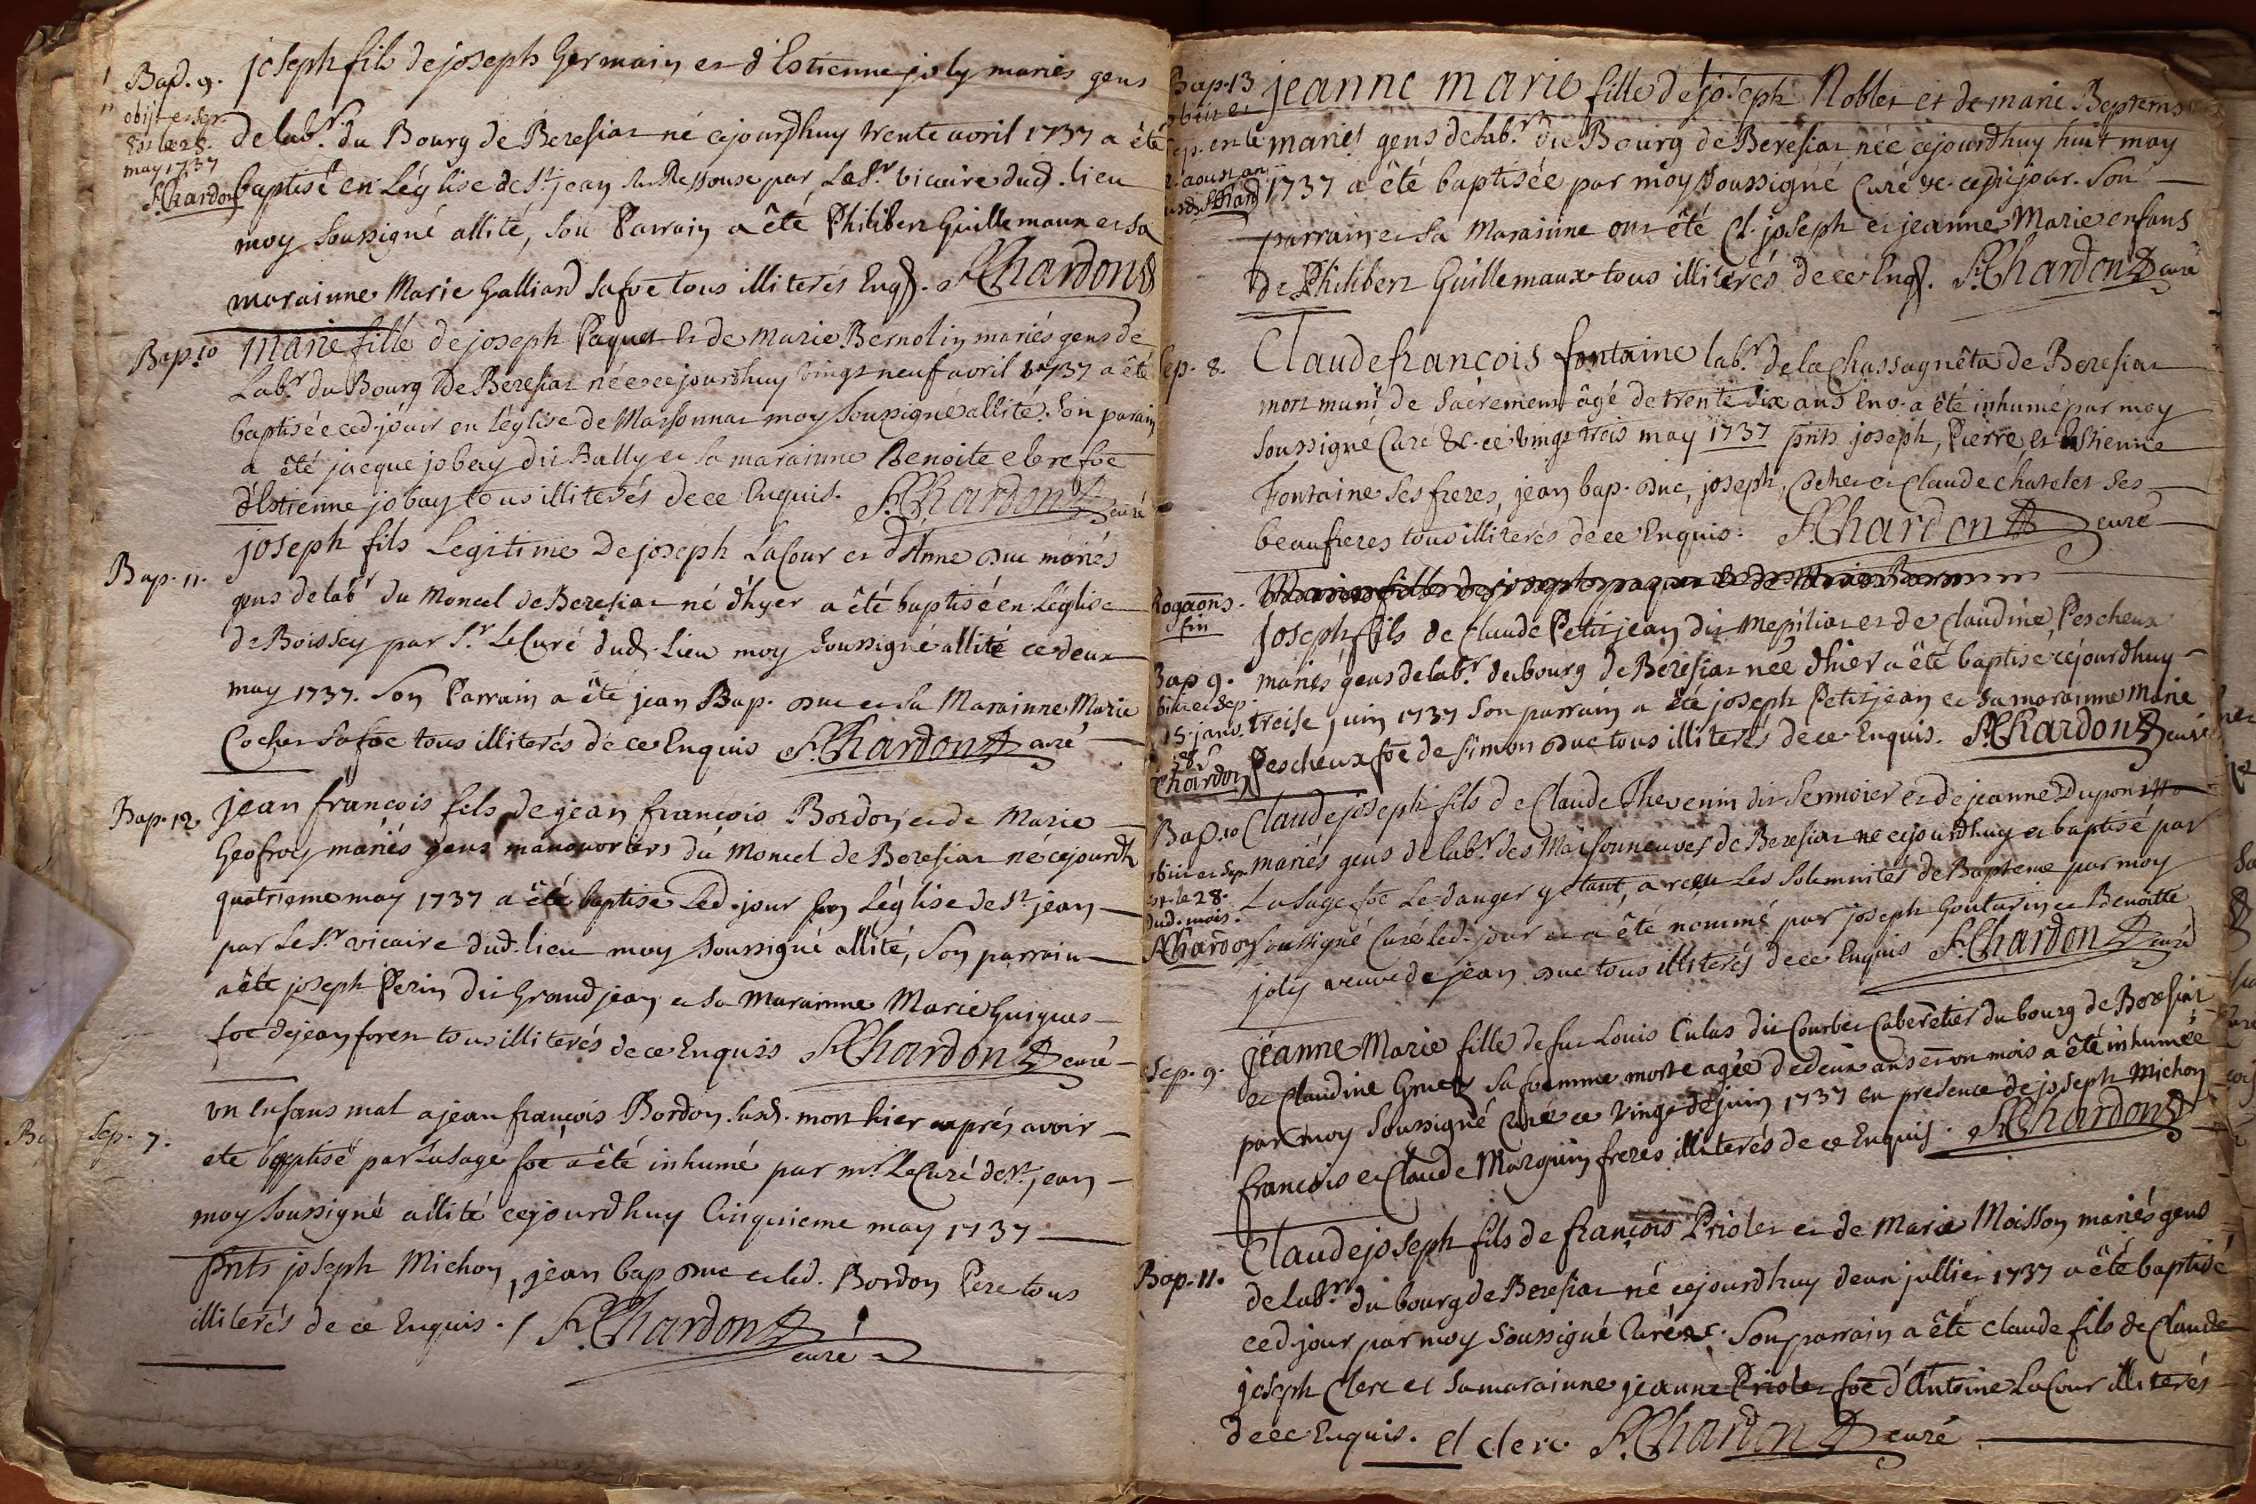 Bap. 9. joseph fils de joseph Germain et d'Estienne joly mariés gens
obijt et sep. est le 28. may 1737 St. Chardon
de labr. du Bourg de Beresiat né cejourdhuy trente avril 1737 a êté
baptisé en Léglise de St. jean sur Ressouse par Le Sr. vicaire dud. lieu
moy soussigné allité, son Parrain a êté Philibert Guillemaux et sa
marainne Marie Galliard sa foe tous illiterés Enq. St. Chardon
Bap. 10 Marie fille de joseph Paquet et de Marie Bernolin mariés gens de
Labr. du Bourg de Beresiat née cejourdhuy vingt neuf avril 1737 a êté
baptisée ced. jour en léglise de Marsonnat moy soussigné allité. Son parain
a êté jacque jobay dit Bally et sa marainne Benoite clerc foe
d'Estienne jobay tous illiterés de ce Enquis. St. Chardon curé
Bap. 11. joseph fils Legitime de joseph LaCour et d'Anne Duc mariés
gens de labr du Moncel de Beresiat né d'hyer a êté baptisé en Léglise
de Boissey par Sr. Le Curé dud. Lieu moy soussigné allité ce deux
may 1737. Son Parrain a êté jean Bap. Duc et sa Marainne Marie
Cocher sa foe tous illiterés de ce Enquis St. Chardon curé
Bap. 12 jean françois fils de jean françois Bordon et de Marie
Geofroy mariés gens manouvriers du Moncel de Beresiat né cejourdh
quatrieme may 1737 a êté baptisé Led. jour en Léglise de St. jean
par Le Sr. vicaire dud. lieu moy soussigné allité, Son parrain
a êté joseph Perin dit Grandjean et sa marainne Marie Guigues
foe de jean foret tous illiterés de ce Enquis St. Chardon curé
Sep. 7. un Enfans mal a jean françois Bordon susd. mort hier aprés avoir
eté baptisé par La sage foe a êté inhumé par mr. Le Curé de St. jean
moy soussigné allité cejourdhuy Cinquieme may 1737
pnts joseph Michon, jean bap Duc et led. Bordon Pere tous
illiterés de ce Enquis. St. Chardon curé
Bap. 13 jeanne marie fille de joseph Noblet et de marie
mariés gens de labr. du Bourg de Beresiat née cejourdhuy huit may
1737 a êté baptisée par moy soussigné Curé &c. cedit jour. Son
parrain et sa Marainne ont êté Cl. joseph et jeanne Marie enfans
de Philibert Guillemaux tous illiterés de ce Enq. St. Chardon curé
Sep. 8. Claude francois fontaine labr. de la Chassagnêta de Beresiat
mort muni de sacrement âgé de trente six ans Env. a êté inhumé par moy
soussigné Curé &c. ce vingt trois may 1737 pnts joseph, Pierre, et Estienne
Fontaine ses freres, jean bap. Duc, joseph Cocher et Claude chatelet ses
beaufreres tous illiterés de ce Enquis. St. Chardon curé
Rogaõns. fin
joseph fils de Claude Petitjean dit Mepiliat et de Claudine Pescheux
Bap 9. mariés gens de labr. du bourg de Beresiat née d'hier a êté baptisé cejourdhuy
treise juin 1737 Son parrain a êté joseph Petitjean et sa marainne Marie
Pescheux foe de Simon Duc tous illiterés de ce Enquis. St. Chardon curé
Bap. 10 Claude joseph fils de Claude Thevenin dit Sermoier et de jeanne Dupon
obiit et sep. est le 28. dud. mois. St. Chardon
mariés gens de labr. des Maisonneuves de Beresiat né cejourdhuy et baptisé par
La sage foe Le danger y etant, a reçu Les solemnités de Bapteme par moy
soussigné Curé led. jour et a êté nommé par joseph Goutarin et Benoitte
joly veuve de jean Duc tous illiterés de ce Enquis St. Chardon curé
Sep. 9. jeanne Marie fille de fut Louis Culas dit Courbet Caberetier du bourg de Beresiat
et Claudine Gruet sa foemme morte agée de deux ans et un mois a êté inhumée
par moy soussigné Curé ce vingt de juin 1737 en presence de joseph Michon
francois et Claude Marguin freres illiterés de ce Enquis. St. Chardon
Bap. 11. Claude joseph fils de françois Priolet et de Marie Moisson mariés gens
de labr. du bourg de Beresiat né cejourdhuy deux jullier 1737 a êté baptisé
ced. jour par moy soussigné Curé &c. Son parrain a êté claude fils de Claude
joseph Clerc et sa marainne jeanne Priolet foe d'Antoine LaCour illiterés
de ce Enquis. Cl clerc St. Chardon curé